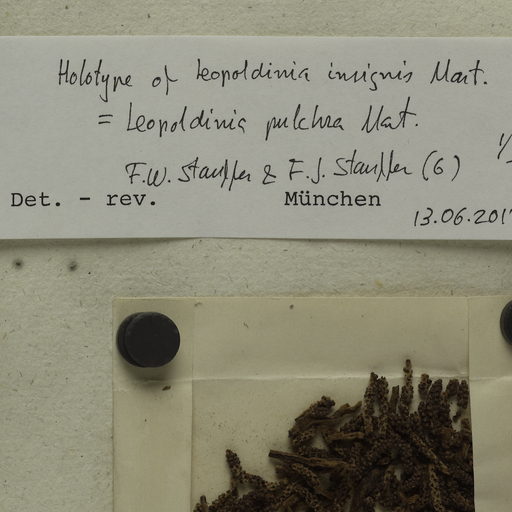 Holotype of Leopoldinia insignis Mart.
= Leopoldinia pulchra Mart.
F.W. Stauffer & F.J. Stauffer (G)
Det. - rev. München
13.06.201